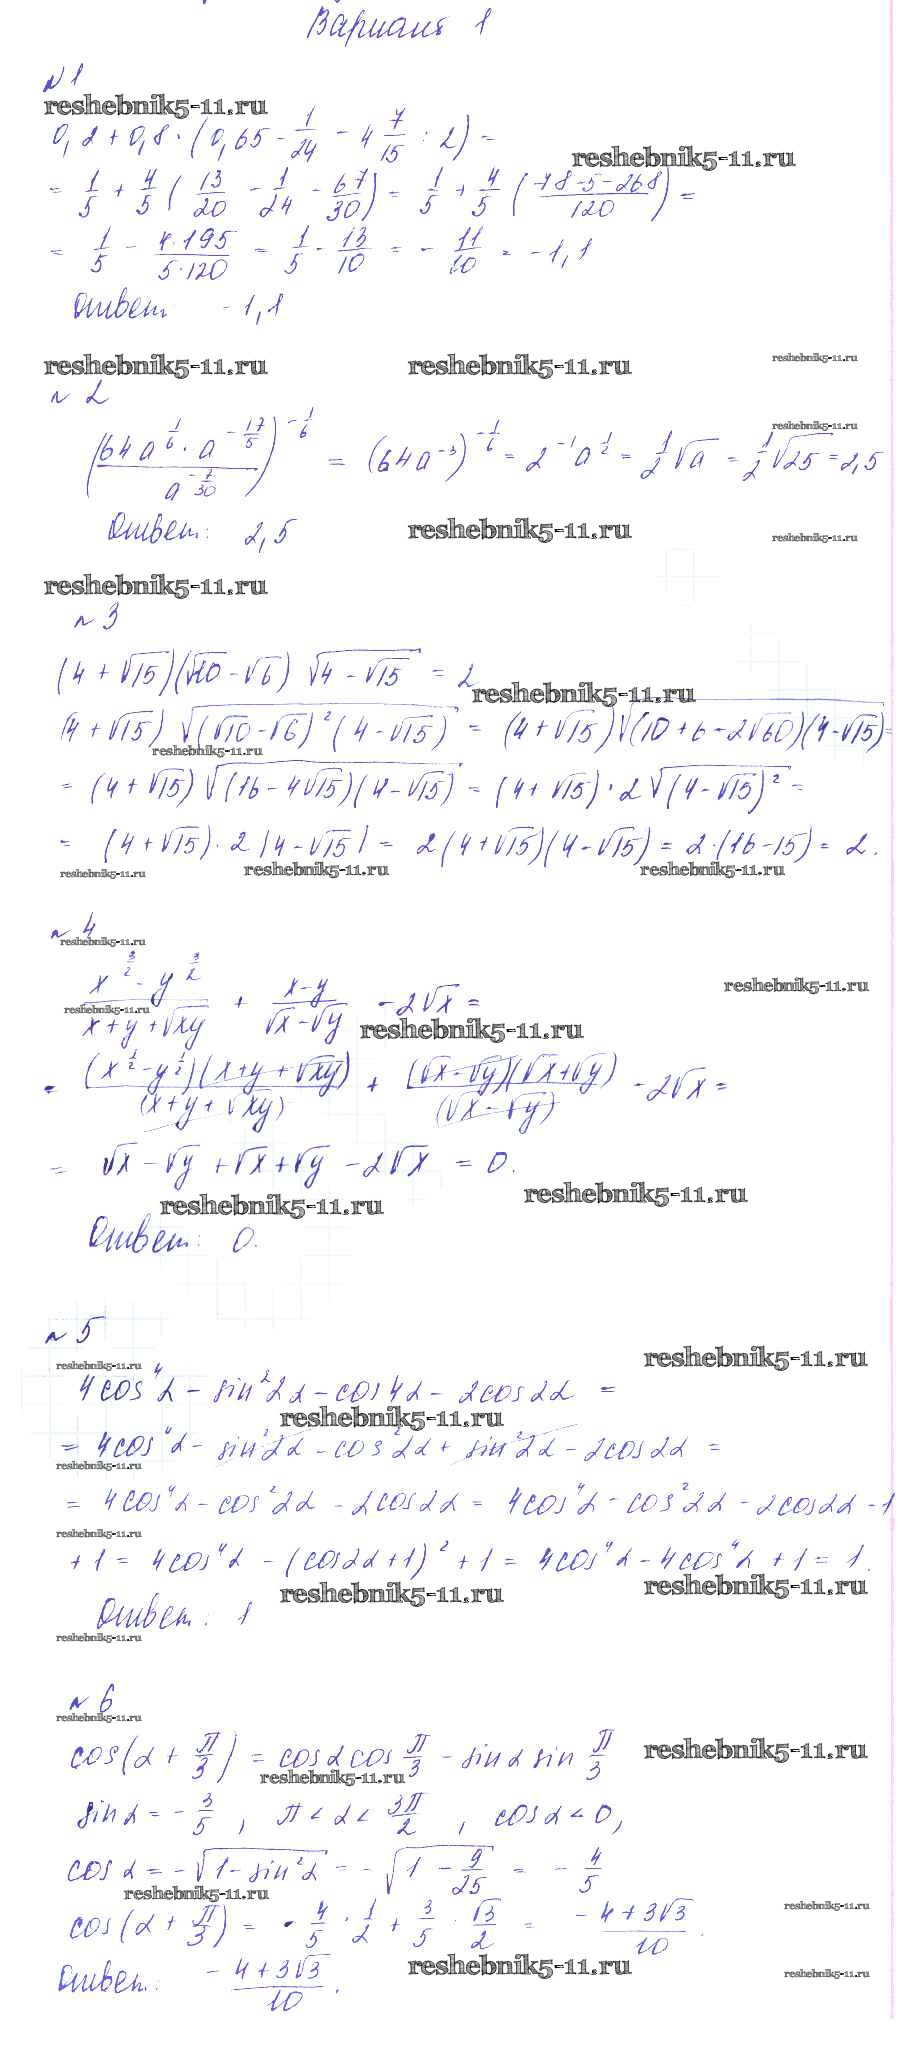 Вариант 1
№1
reshebnik5-11.ru
0,2 + 0,8 · (0,65 - 1/24 - 4 7/15 : 2) =
reshebnik5-11.ru
= 1/5 + 4/5 (13/20 - 1/24 - 67/30) = 1/5 + 4/5 (78-5-268/120) =
= 1/5 - 4·195/5·120 = 1/5 - 13/10 = - 11/10 = -1,1
Ответ: -1,1
reshebnik5-11.ru reshebnik5-11.ru reshebnik5-11.ru
№ 2
reshebnik5-11.ru
(64a^(1/6) · a^(-17/5) / a^(-7/30))^(-1/6) = (64a^(-3))^(-1/6) = 2^(-1)a^(1/2) = 1/2 √a = 1/2 √25 = 2,5
Ответ: 2,5
reshebnik5-11.ru reshebnik5-11.ru
reshebnik5-11.ru
№ 3
(4 + √15)(√10 - √6) √(4 - √15) = 2
reshebnik5-11.ru
(4 + √15) √((√10 - √6)² (4 - √15)) = (4 + √15) √((10 + 6 - 2√60)(4 - √15)) =
reshebnik5-11.ru
= (4 + √15) √((16 - 4√15)(4 - √15)) = (4 + √15) · 2√((4 - √15)²) =
= (4 + √15) · 2 |4 - √15| = 2(4 + √15)(4 - √15) = 2 · (16 - 15) = 2.
reshebnik5-11.ru reshebnik5-11.ru reshebnik5-11.ru
№ 4
reshebnik5-11.ru
x^(3/2) - y^(3/2) / x + y + √xy + x-y / √x - √y - 2√x =
reshebnik5-11.ru
reshebnik5-11.ru
reshebnik5-11.ru
= (x^(1/2) - y^(1/2))(x + y + √xy) / (x + y + √xy) + (√x - √y)(√x + √y) / (√x - √y) - 2√x =
= √x - √y + √x + √y - 2√x = 0.
reshebnik5-11.ru reshebnik5-11.ru
Ответ: 0.
№ 5
reshebnik5-11.ru
reshebnik5-11.ru
4cos⁴α - sin²2α - cos4α - 2cos2α =
reshebnik5-11.ru
= 4cos⁴α - sin²2α - cos²2α + sin²2α - 2cos2α =
reshebnik5-11.ru
= 4cos⁴α - cos²2α - 2cos2α = 4cos⁴α - cos²2α - 2cos2α - 1
reshebnik5-11.ru
+ 1 = 4cos⁴α - (cos2α + 1)² + 1 = 4cos⁴α - 4cos⁴α + 1 = 1.
reshebnik5-11.ru reshebnik5-11.ru
Ответ: 1
reshebnik5-11.ru
№ 6
reshebnik5-11.ru
cos(α + π/3) = cosα cos π/3 - sinα sin π/3
reshebnik5-11.ru
reshebnik5-11.ru
sinα = - 3/5, π < α < 3π/2, cosα < 0,
cosα = -√(1 - sin²α) = -√(1 - 9/25) = - 4/5
reshebnik5-11.ru
reshebnik5-11.ru
cos(α + π/3) = - 4/5 · 1/2 + 3/5 · √3/2 = -4 + 3√3/10.
reshebnik5-11.ru reshebnik5-11.ru
Ответ: -4 + 3√3/10.